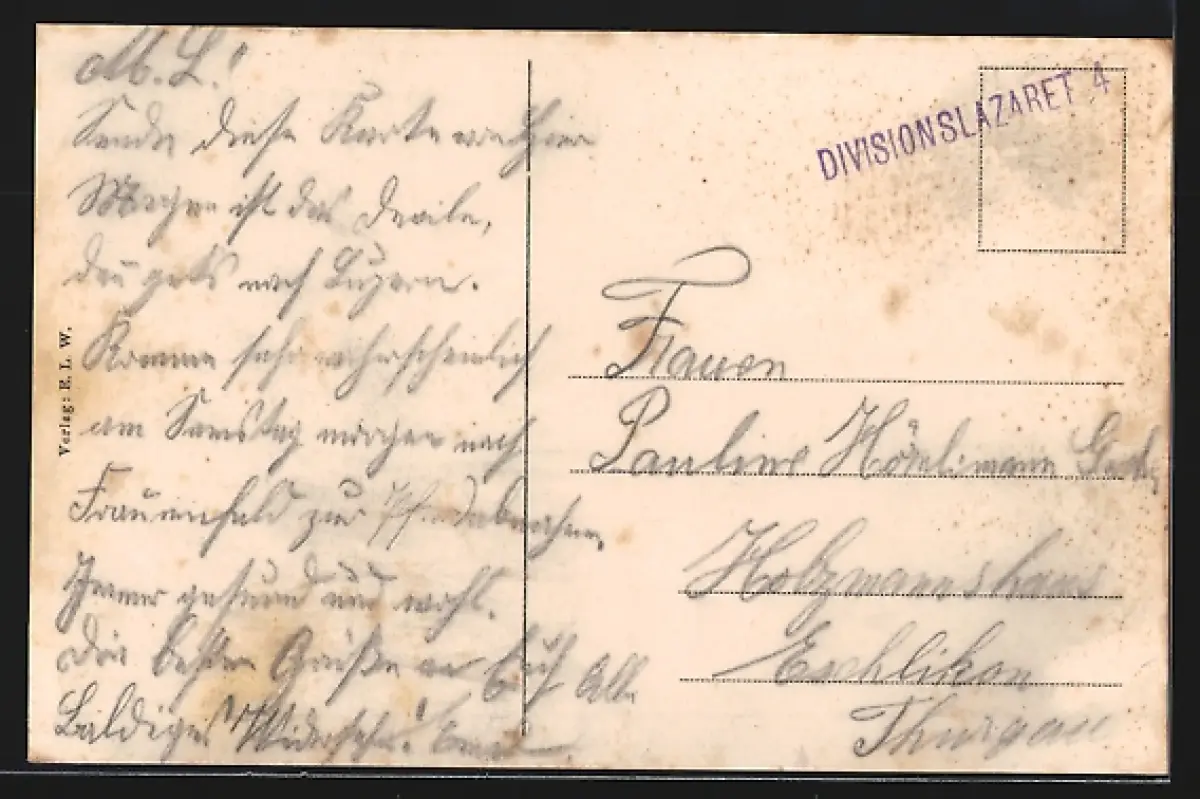 M. L!
Sende diese Karte von hier
Morgen ist das
nach Luzern.
Komme sehr wahrscheinlich
am Samstag morgen nach
Frauenfeld zur Pferdabnahme,
Immer gesund und wohl.
Die besten Grüße an Euch Alle
Baldiges Widersehn!
Verlag: E. L. W.
DIVISIONSLAZARET 4
Frauen
Pauline
Holzmannshaus
Eschlikon
Thurgau